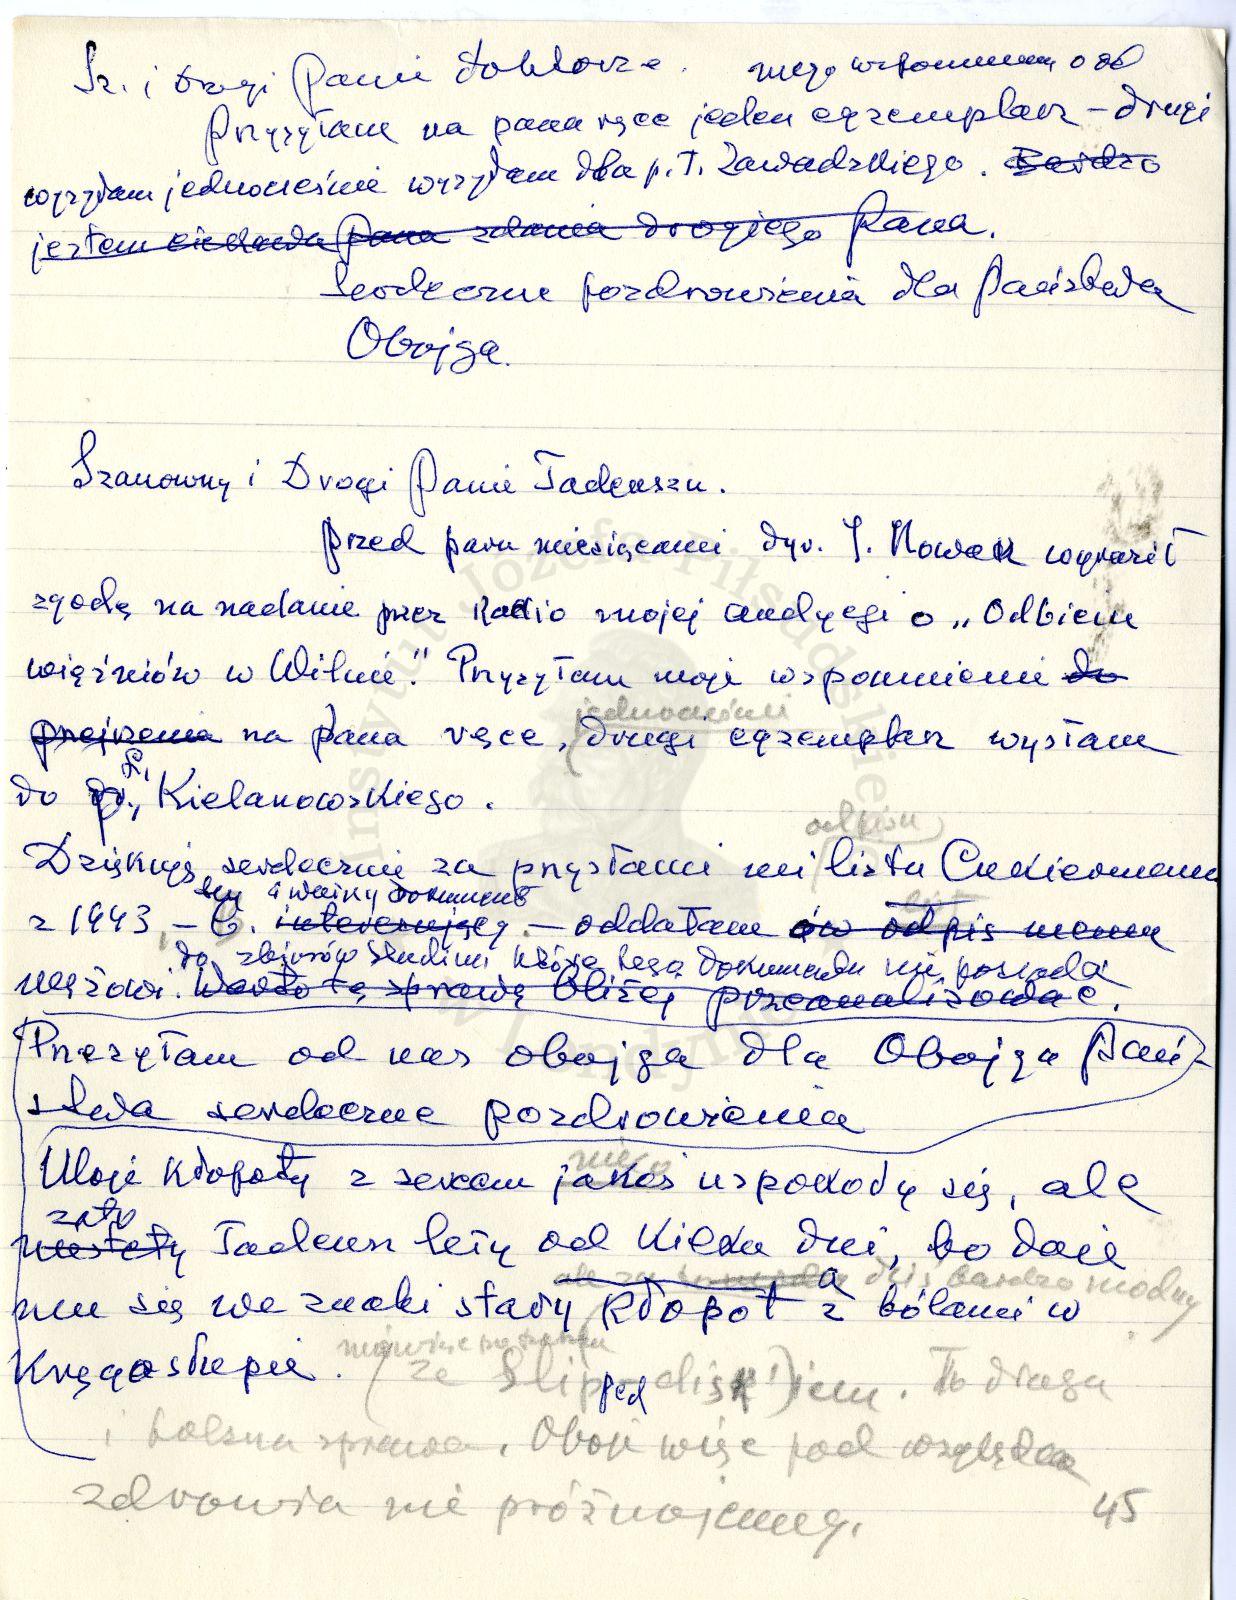 Sz. i Drogi Panie Doktorze. moje wspomnienia o
Przysyłam na pana ręce jeden egzemplarz – drugi
wysyłam jednocześnie wysyłam dla p. T. Zawadzkiego. Bardzo
jestem ciekawa Pana zdania drogiego Pana.
Serdeczne pozdrowienia dla Państwa
Obojga.
Szanowny i Drogi Panie Tadeuszu.
Przed paru miesiącami dyr. J. Nowak wyraził
zgodę na nadanie przez Radio mojej audycji o „Odbiciu
więźniów w Wilnie". Przysyłam moje wspomnienie do
jednocześnie
przejrzenia na Pana ręce, drugi egzemplarz wysłam
do p. Kielanowskiego.
odpisu
Dziękuję serdecznie za przysłanie mi listu Cukiermana
ten i ważny dokument
z 1943, – b. interesujący – oddałam ów odpis memu
do zbiorów Studium które tego dokumentu nie posiada
mężowi. Warto tę sprawę bliżej przeanalizować.
Przesyłam od nas obojga dla Obojga Pań-
stwa serdeczne pozdrowienia
nieco
Moje kłopoty z sercem jakoś uspokoiły się, ale
zato
niestety Tadeusz leży od kilku dni, bo daje
dziś bardzo modny
mu się we znaki stary kłopot z bólami w
kręgosłupie. (ze slip-disk'iem. To długa
i bolesna sprawa. Oboje więc pod względem
zdrowia nie próżnujemy.
45
Instytut Józefa Piłsudskiego w Londynie